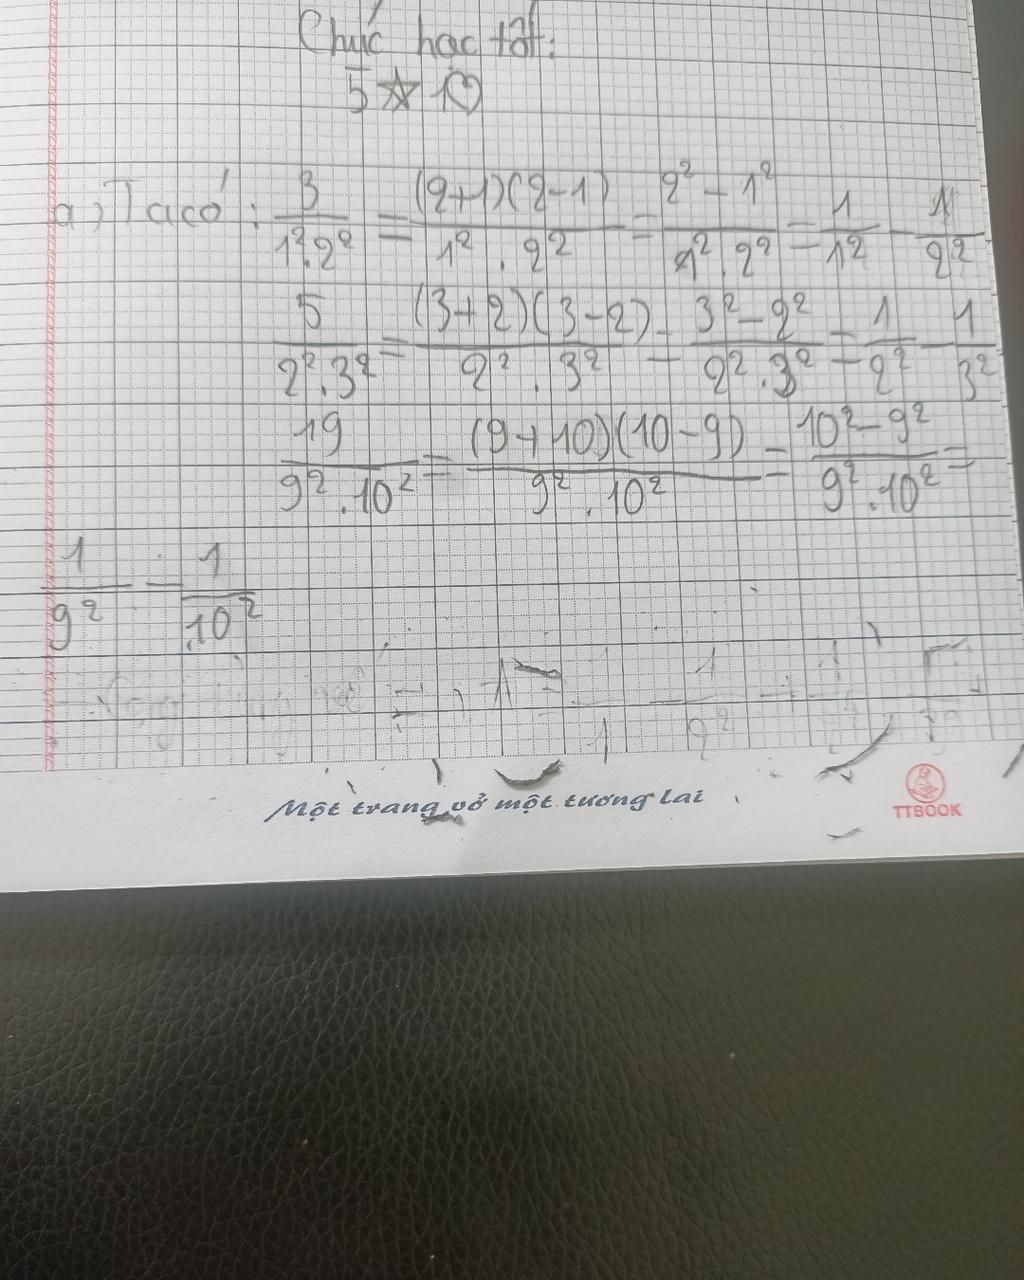 Chúc học tốt:
5☆1♡
a, Ta có: 3/(1².2²) = (2+1)(2-1)/(1².2²) = (2²-1²)/(1².2²) = 1/1² - 1/2²
5/(2².3²) = (3+2)(3-2)/(2².3²) = (3²-2²)/(2².3²) = 1/2² - 1/3²
19/(9².10²) = (9+10)(10-9)/(9².10²) = (10²-9²)/(9².10²) =
1/9² - 1/10²
Một trang vở một tương lai
TTBOOK